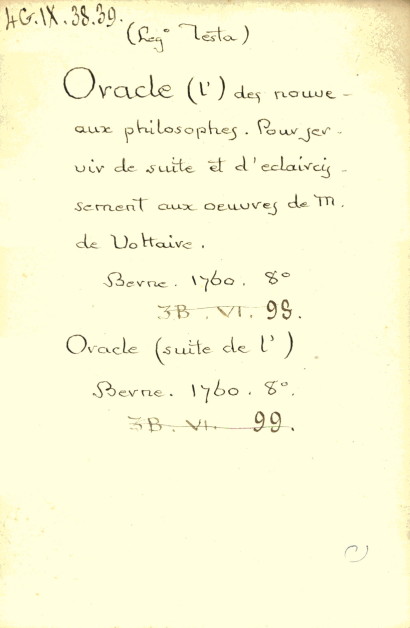 4G.IX.38.39.
(Leg° Testa)
Oracle (l') des nouve-
aux philosophes. Pour ser-
vir de suite et d'eclaircis-
sement aux oeuvres de M.
de Voltaire.
Berne. 1760. 8°
3B.VI. 98.
Oracle (suite de l')
Berne. 1760. 8°.
3B.VI. 99.